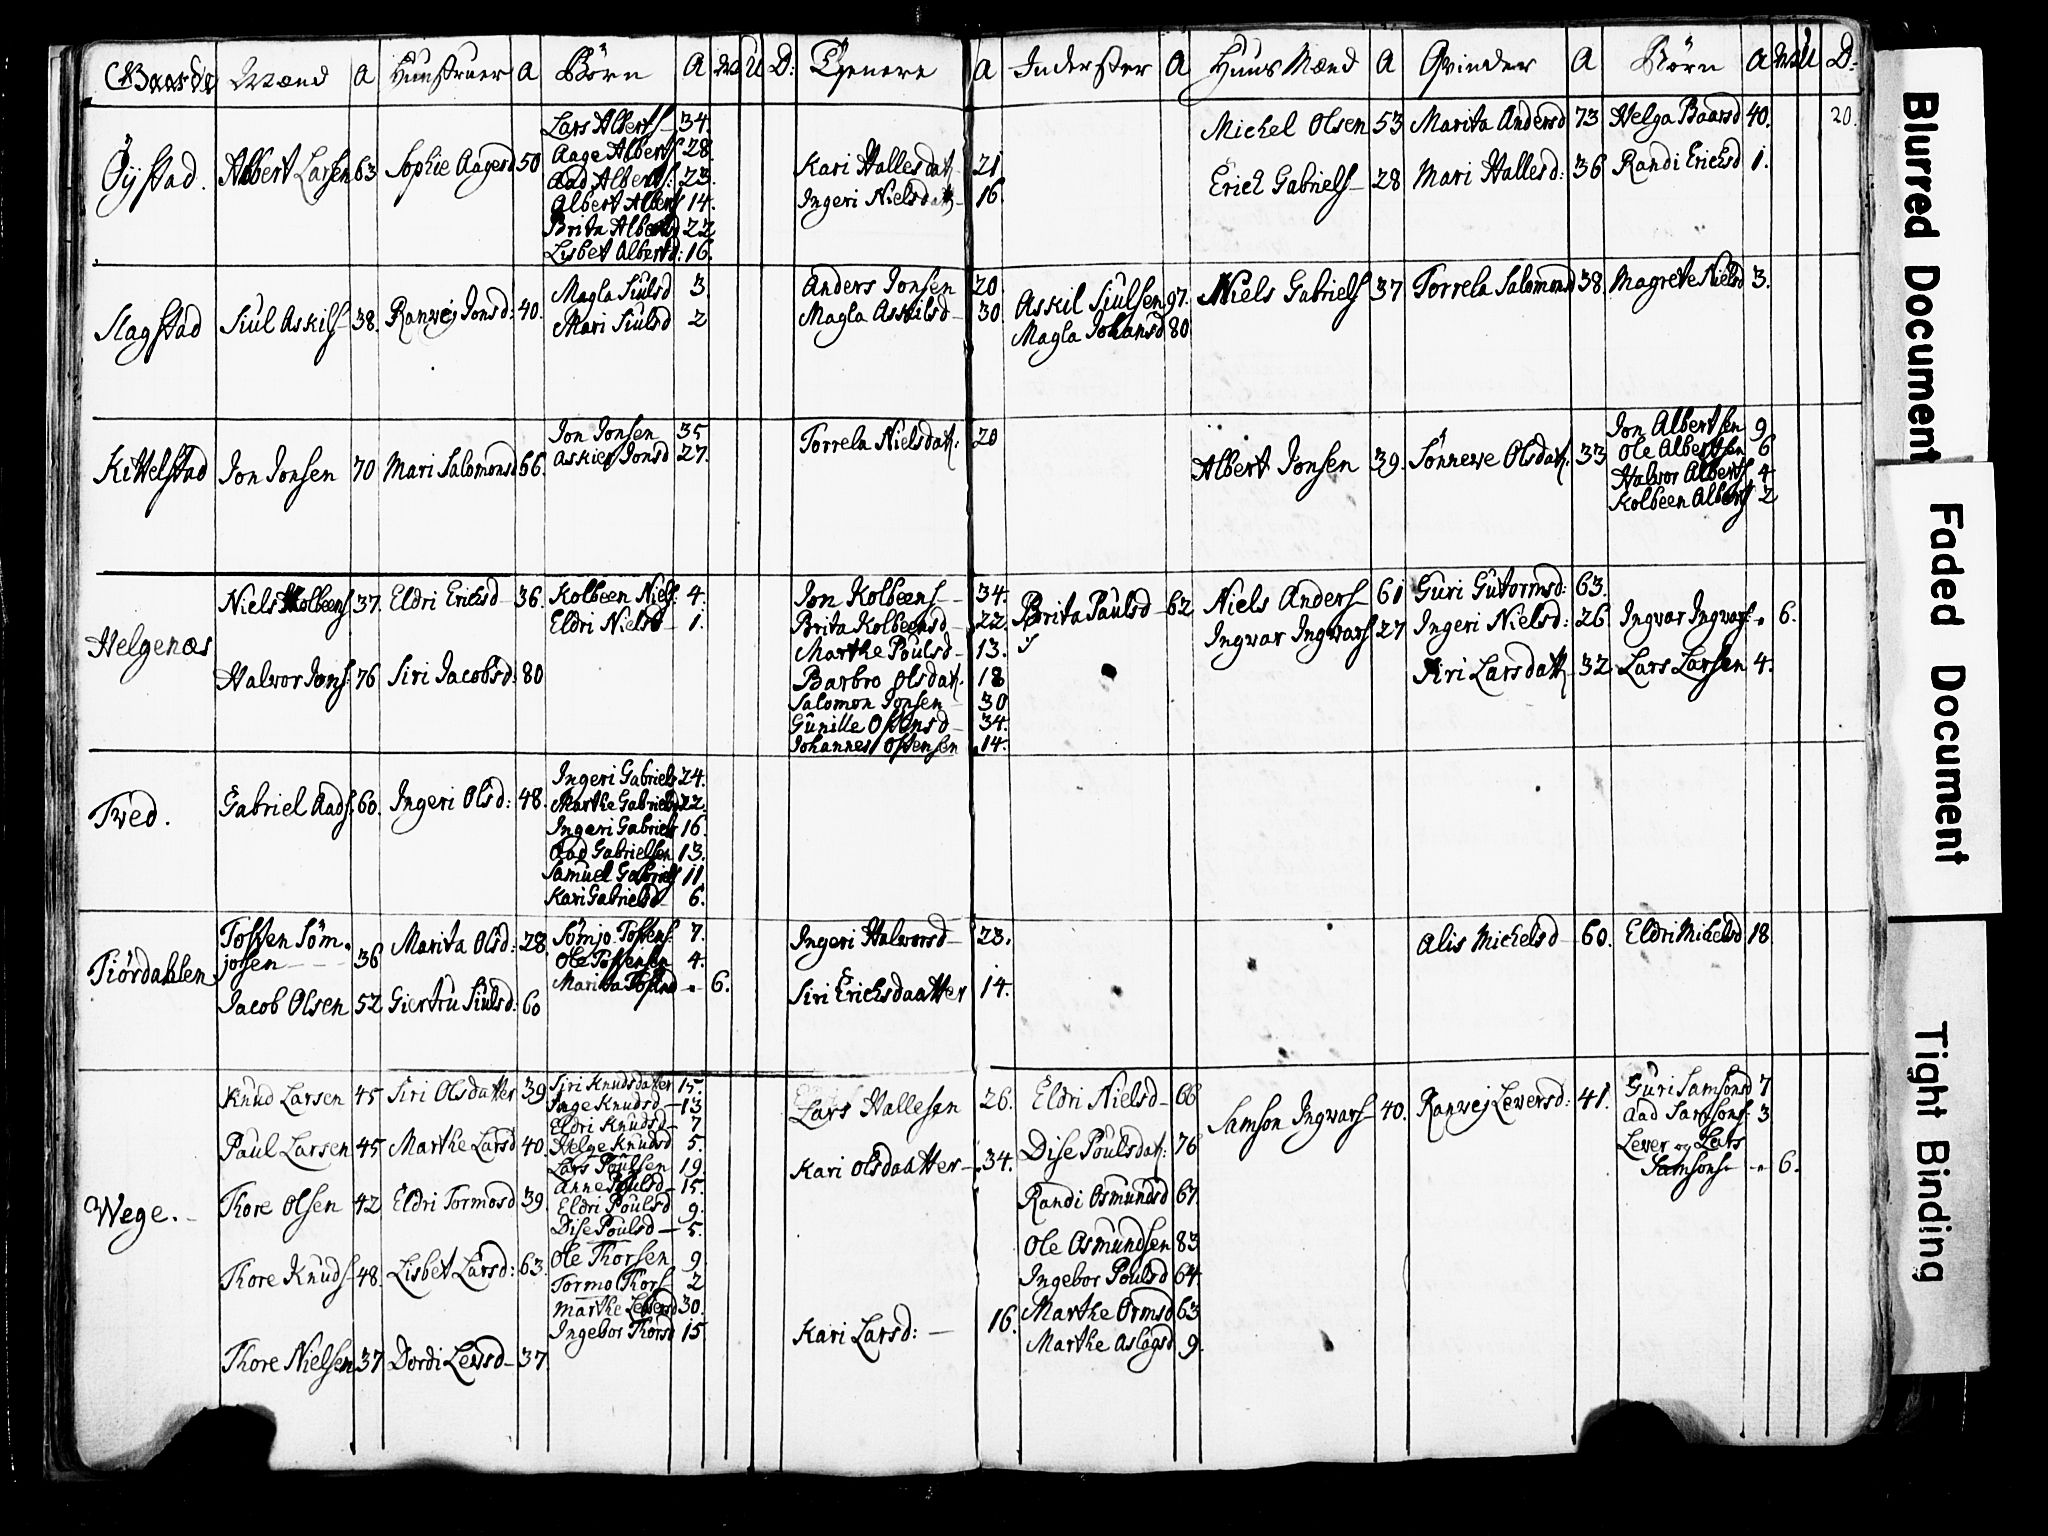 Gaarde Mænd A Huustruer A Børn A M U D: Tienere A Inderster A Huus Mænd A Qvinder A Børn A M U D:
Öÿstad. Albert Larsen 63 Sophie Aagesd 50
Lars Alberts- 34.
Aage Alberts 28.
Aad Alberts: 23.
Albert Alberts 14.
Brita Albertsd 22
Lisbet Albertd: 16.
Kari Hallesdat. 21
Ingeri Nielsdatt- 16.
Michel Olsen 53 Marita Andersd 73 Helga Baarsd 40. 20.
Erich Gabriels- 28 Mari Hallesd: 36 Randi Erichsd 1.
Slagstad Siul Askils- 38. Ranvej Jonsd: 40.
Magla Siulsd 3.
Mari Siulsd 2
Anders Jonsen 20.
Magla Askilsd- 30.
Askil Siulsen 97.
Magla Johansd 80
Niels Gabriels 37 Torrela Salomonsd 38. Magrete Nielsd 3.
Kittelstad Jon Jonsen 70 Mari Salomonsd 66.
Jon Jonsen 35
Askier Jonsd 27.
Torrela Nielsdatt: 20
Albert Jonsen 39. Sönneve Olsdatt. 33
Jon Albertsen 9
Ole Albertsen 6
Halvor Alberts 4
Kolbeen Alberts 2
Helgenæs
Niels Kolbeens 37. Eldri Erichsd- 36.
Kolbeen Niels: 4.
Eldri Nielsd- 1.
Halvor Jons: 76 Siri Jacobsd: 80
Jon Kolbeens- 34.
Brita Kolbeensd- 22.
Marthe Poulsd- 13.
Barbro Olsdat. 18
Salomon Jonsen- 30
Gunille Ostensd- 34.
Johannes Ostensen 14.
Brita Paulsd- 62
Niels Anders- 61 Guri Gutormsd: 63.
Ingvar Ingvars 27 Ingeri Nielsd: 26 Ingvar Ingvars- " 6.
Siri Larsdatt- 32 Lars Larsen 4.
Tved. Gabriel Aads. 60. Ingeri Olsd: 48.
Ingeri Gabriels 24.
Marthe Gabrielsd 22.
Ingeri Gabriels 16.
Aad Gabrielsen 13.
Samuel Gabriels 11
Kari Gabrielsd 6.
Tiördahlen
Tosten Söm-
josen- - - 36 Marita Olsd: 28
Sömjo Tostens: 7.
Ole Tostensen 4.
Marita Tostend - " 6.
Jacob Olsen 52 Giertru Siulsd: 60
Ingeri Halvorsd- 23.
Siri Erichsdaatter 14.
Alis Michelsd- 60. Eldri Michelsd 18
Wege.-
Knud Larsen 45 Siri Olsdatter 39
Paul Larsen 45 Marthe Larsd 40.
Thore Olsen 42 Eldri Tormosd 39.
Thore Knuds- 48. Lisbet Larsd: 63.
Thore Nielsen 37 Dordi Leversd- 37.
Siri Knudsdatter 15.
Inge Knudsd- 13
Eldri Knudsd- 7
Helge Knudsd 5.
Lars Poulsen 19.
Anne Poulsd- 15.
Eldri Poulsd 9.
Dise Poulsd- 5.
Ole Thorsen 9
Tormo Thors- 2
Marthe Leversd 30.
Ingebor Thorsd 15
Lars Hallesen 26.
Kari Olsdaatter- 34.
Kari Larsd:- 16.
Eldri Nielsd- 66
Dise Poulsdat: 76
Randi Osmundsd 67.
Ole Osmundsen 83
Ingebor Poulsd 64
Marthe Ormsd 63
Marthe Aslagsd 9.
Samson Ingvars- 40. Ranvej Leversd: 41.
Guri Samsonsd 7
Aad Samsons: 3
Lever og Lars
Samsons- - " 6.
Blurred Document
Faded Document
Tight Binding